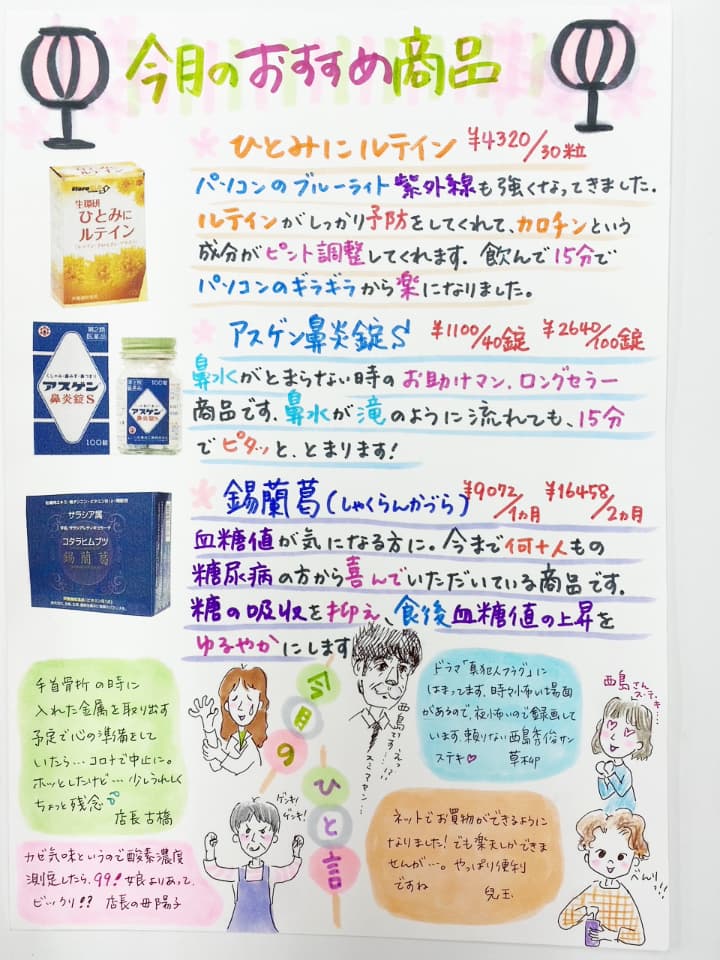 今月のおすすめ商品
ひとみにルテイン ¥4320/30粒
パソコンのブルーライト紫外線も強くなってきました。
ルテインがしっかり予防をしてくれて、カロチンという
成分がピント調整してくれます。飲んで15分で
パソコンのギラギラから楽になりました。
生環研
ひとみに
ルテイン
アスゲン鼻炎錠S ¥1100/40錠 ¥2640/100錠
鼻水がとまらない時のお助けマン、ロングセラー
商品です。鼻水が滝のように流れても、15分
でピタッと、とまります!
第2類
医薬品
くしゃみ・鼻みず・鼻づまり
アスゲン
鼻炎錠S
100錠
アスゲン
鼻炎錠S
100錠
錫蘭葛(しゃくらんかづら) ¥9072/1カ月 ¥16458/2カ月
血糖値が気になる方に。今まで何十人もの
糖尿病の方から喜んでいただいている商品です。
糖の吸収を抑え、食後血糖値の上昇を
ゆるやかにします
サラシア属
コタラヒムブツ
錫蘭葛
今月のひと言
手首骨折の時に
入れた金属を取り出す
予定で心の準備をして
いたら…コロナで中止に。
ホッとしたけど…少しうれしく
ちょっと残念
店長古橋
西島です、えっ?!!
スミマセン…
ドラマ「真犯人フラグ」に
はまってます。時々怖い場面
があるので、夜怖いので録画して
います。頼りない西島秀俊サン
ステキ♡ 草柳
西島さん
ステキ…
カゼ気味というので酸素濃度
測定したら、99!娘よりあって、
ビックリ!?店長の母陽子
ゲンキ!
ゲンキ!
ネットでお買物ができるように
なりました!でも楽天しかできま
せんが…。やっぱり便利
ですね 児玉
べんりっ!!